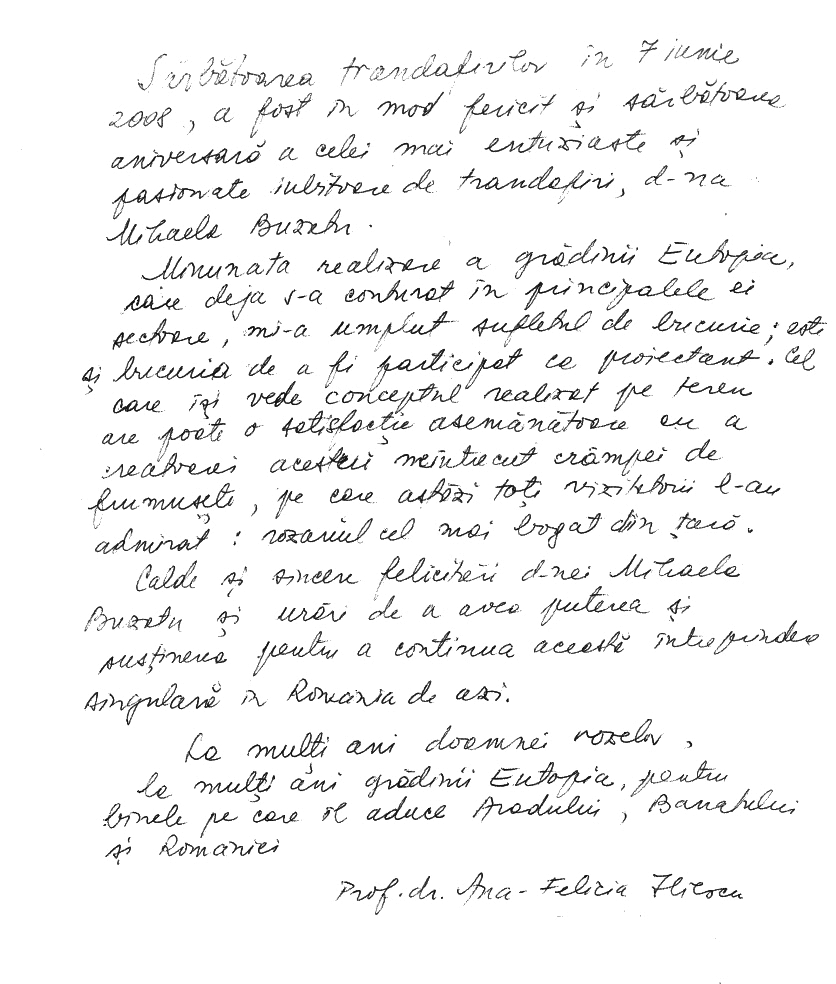 Sărbătoarea trandafirilor în 7 iunie
2008, a fost în mod fericit și sărbătoarea
aniversară a celei mai entuziaste și
pasionate iubitoare de trandafiri, d-na
Mihaela Buzatu.
Minunata realizare a grădinii Eutopia,
care deja s-a conturat în principalele ei
sectoare, mi-a umplut sufletul de bucurie; este
și bucuria de a fi participat ca proiectant. Cel
care își vede conceptul realizat pe teren
are poate o satisfacție asemănătoare cu a
creatoarei acestui neîntrecut crâmpei de
frumusețe, pe care astăzi toți vizitatorii l-au
admirat: rozariul cel mai bogat din țară.
Calde și sincere felicitări d-nei Mihaela
Buzatu și urări de a avea puterea și
susținerea pentru a continua această întreprindere
singulară în România de azi.
La mulți ani doamnei rozelor,
la mulți ani grădinii Eutopia, pentru
binele pe care îl aduce Aradului, Banatului
și României
Prof. dr. Ana-Felicia Iliescu